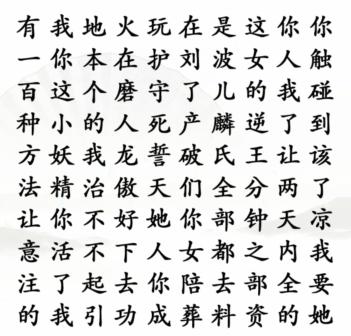 有我地火玩在是这你你
一你本在护刘波女人触
百这个磨守了儿的我碰
种小的人死产麟逆了到
方妖我龙誓破氏王让该
法精治傲天们全分两了
让你不好她你部钟天凉
意活不下人女都之内我
注了起去你陪去部全要
的我引功成葬料资的她